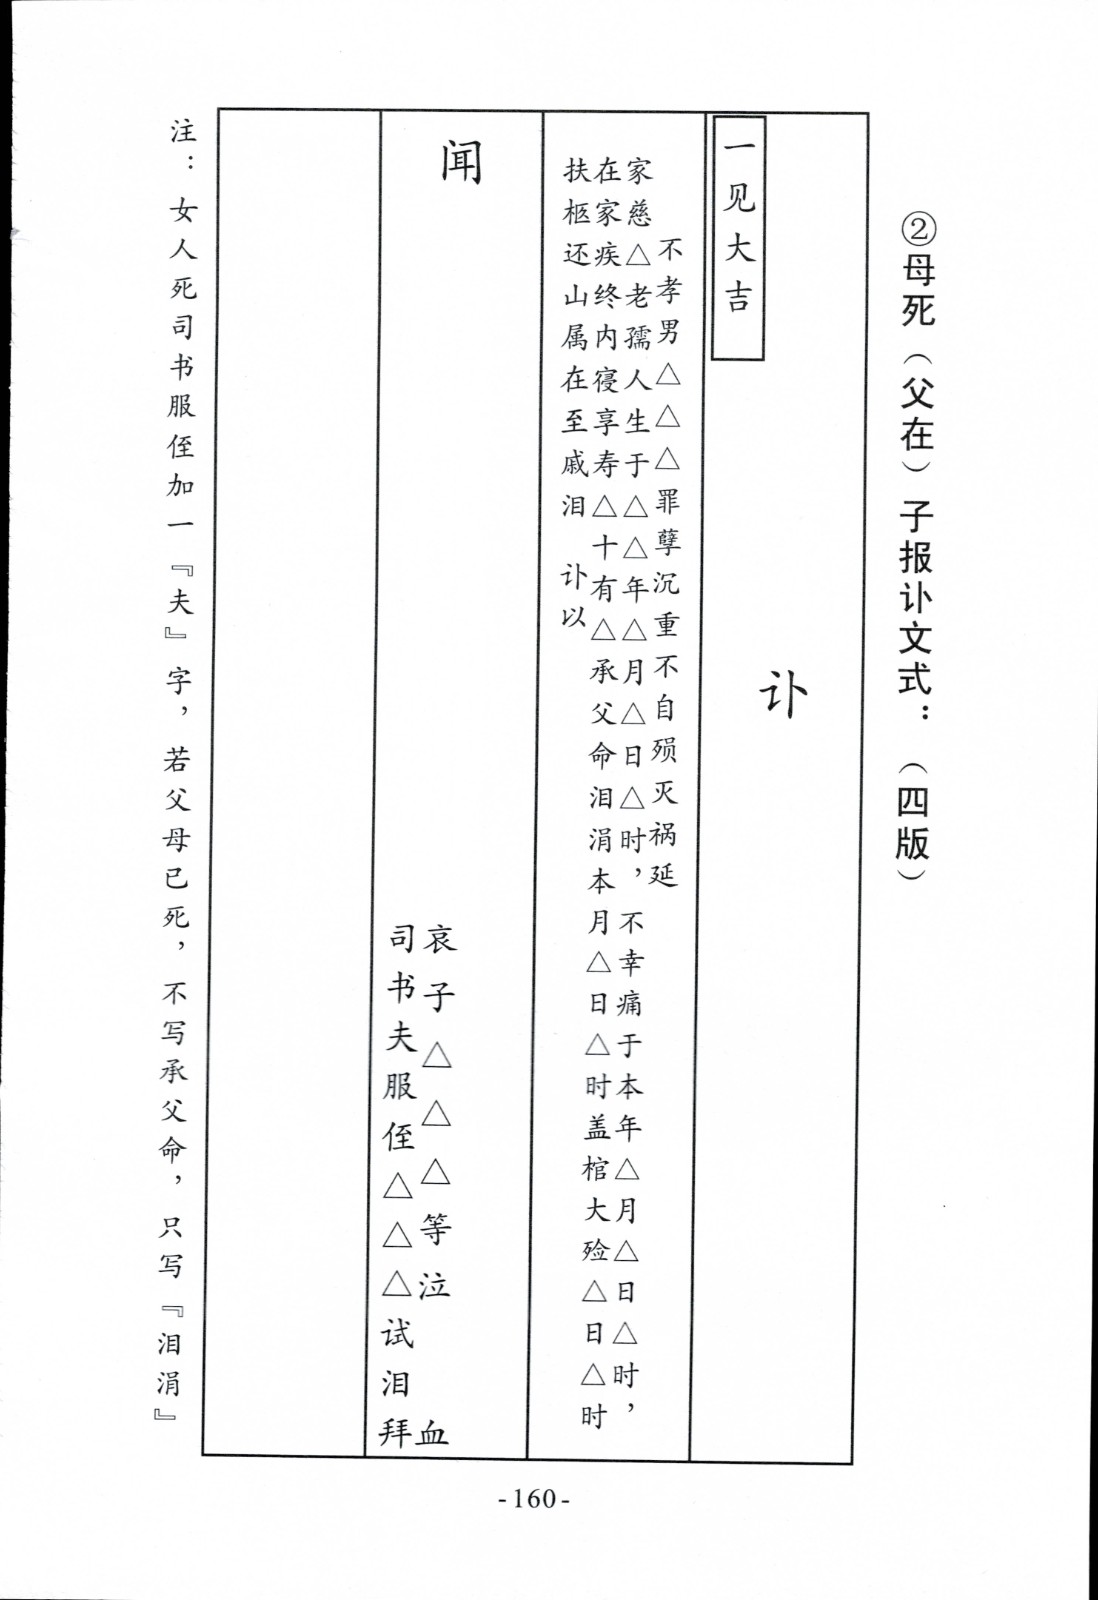 ②母死（父在）子报讣文式：（四版）
一见大吉
讣
不孝男△△△罪孽沉重不自殒灭祸延
家慈△老孺人生于△△年△月△日△时，不幸痛于本年△月△日△时，
在家疾终内寝享寿△十有△承父命泪涓本月△日△时盖棺大殓△日△时
扶柩还山属在至戚泪　讣以
闻
哀子△△△等泣　血
司书夫服侄△△△试泪拜
注：女人死司书服侄加一『夫』字，若父母已死，不写承父命，只写『泪涓』
-160-